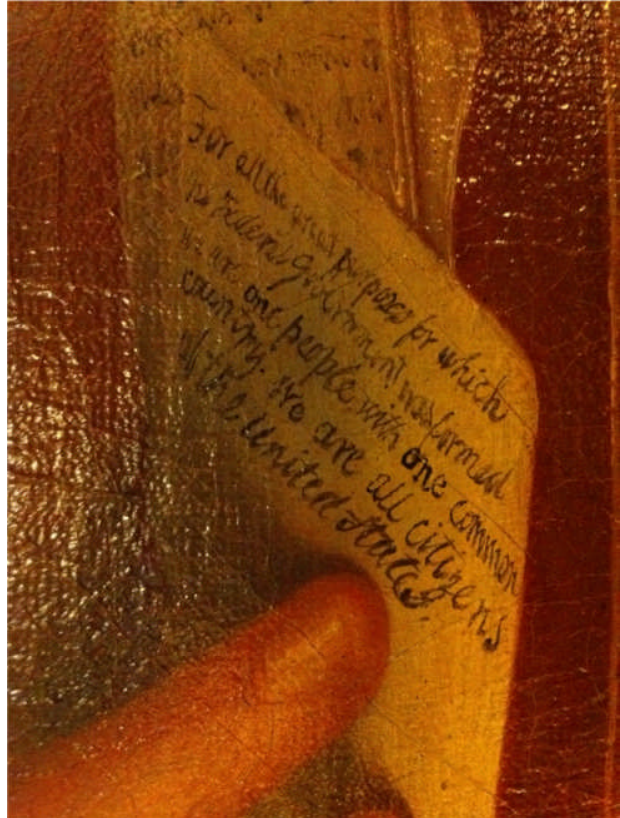 For all the great purposes for which
the Federal Government was formed
we are one people with one common
country. We are all citizens
of the United States.